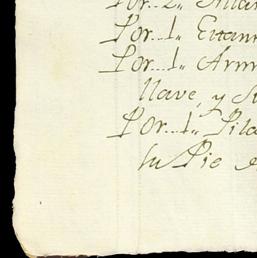 Por...2,,
Por...1,, Estan
Por...1,, Arm
llave, y su
Por...1,, Pila
su Pie